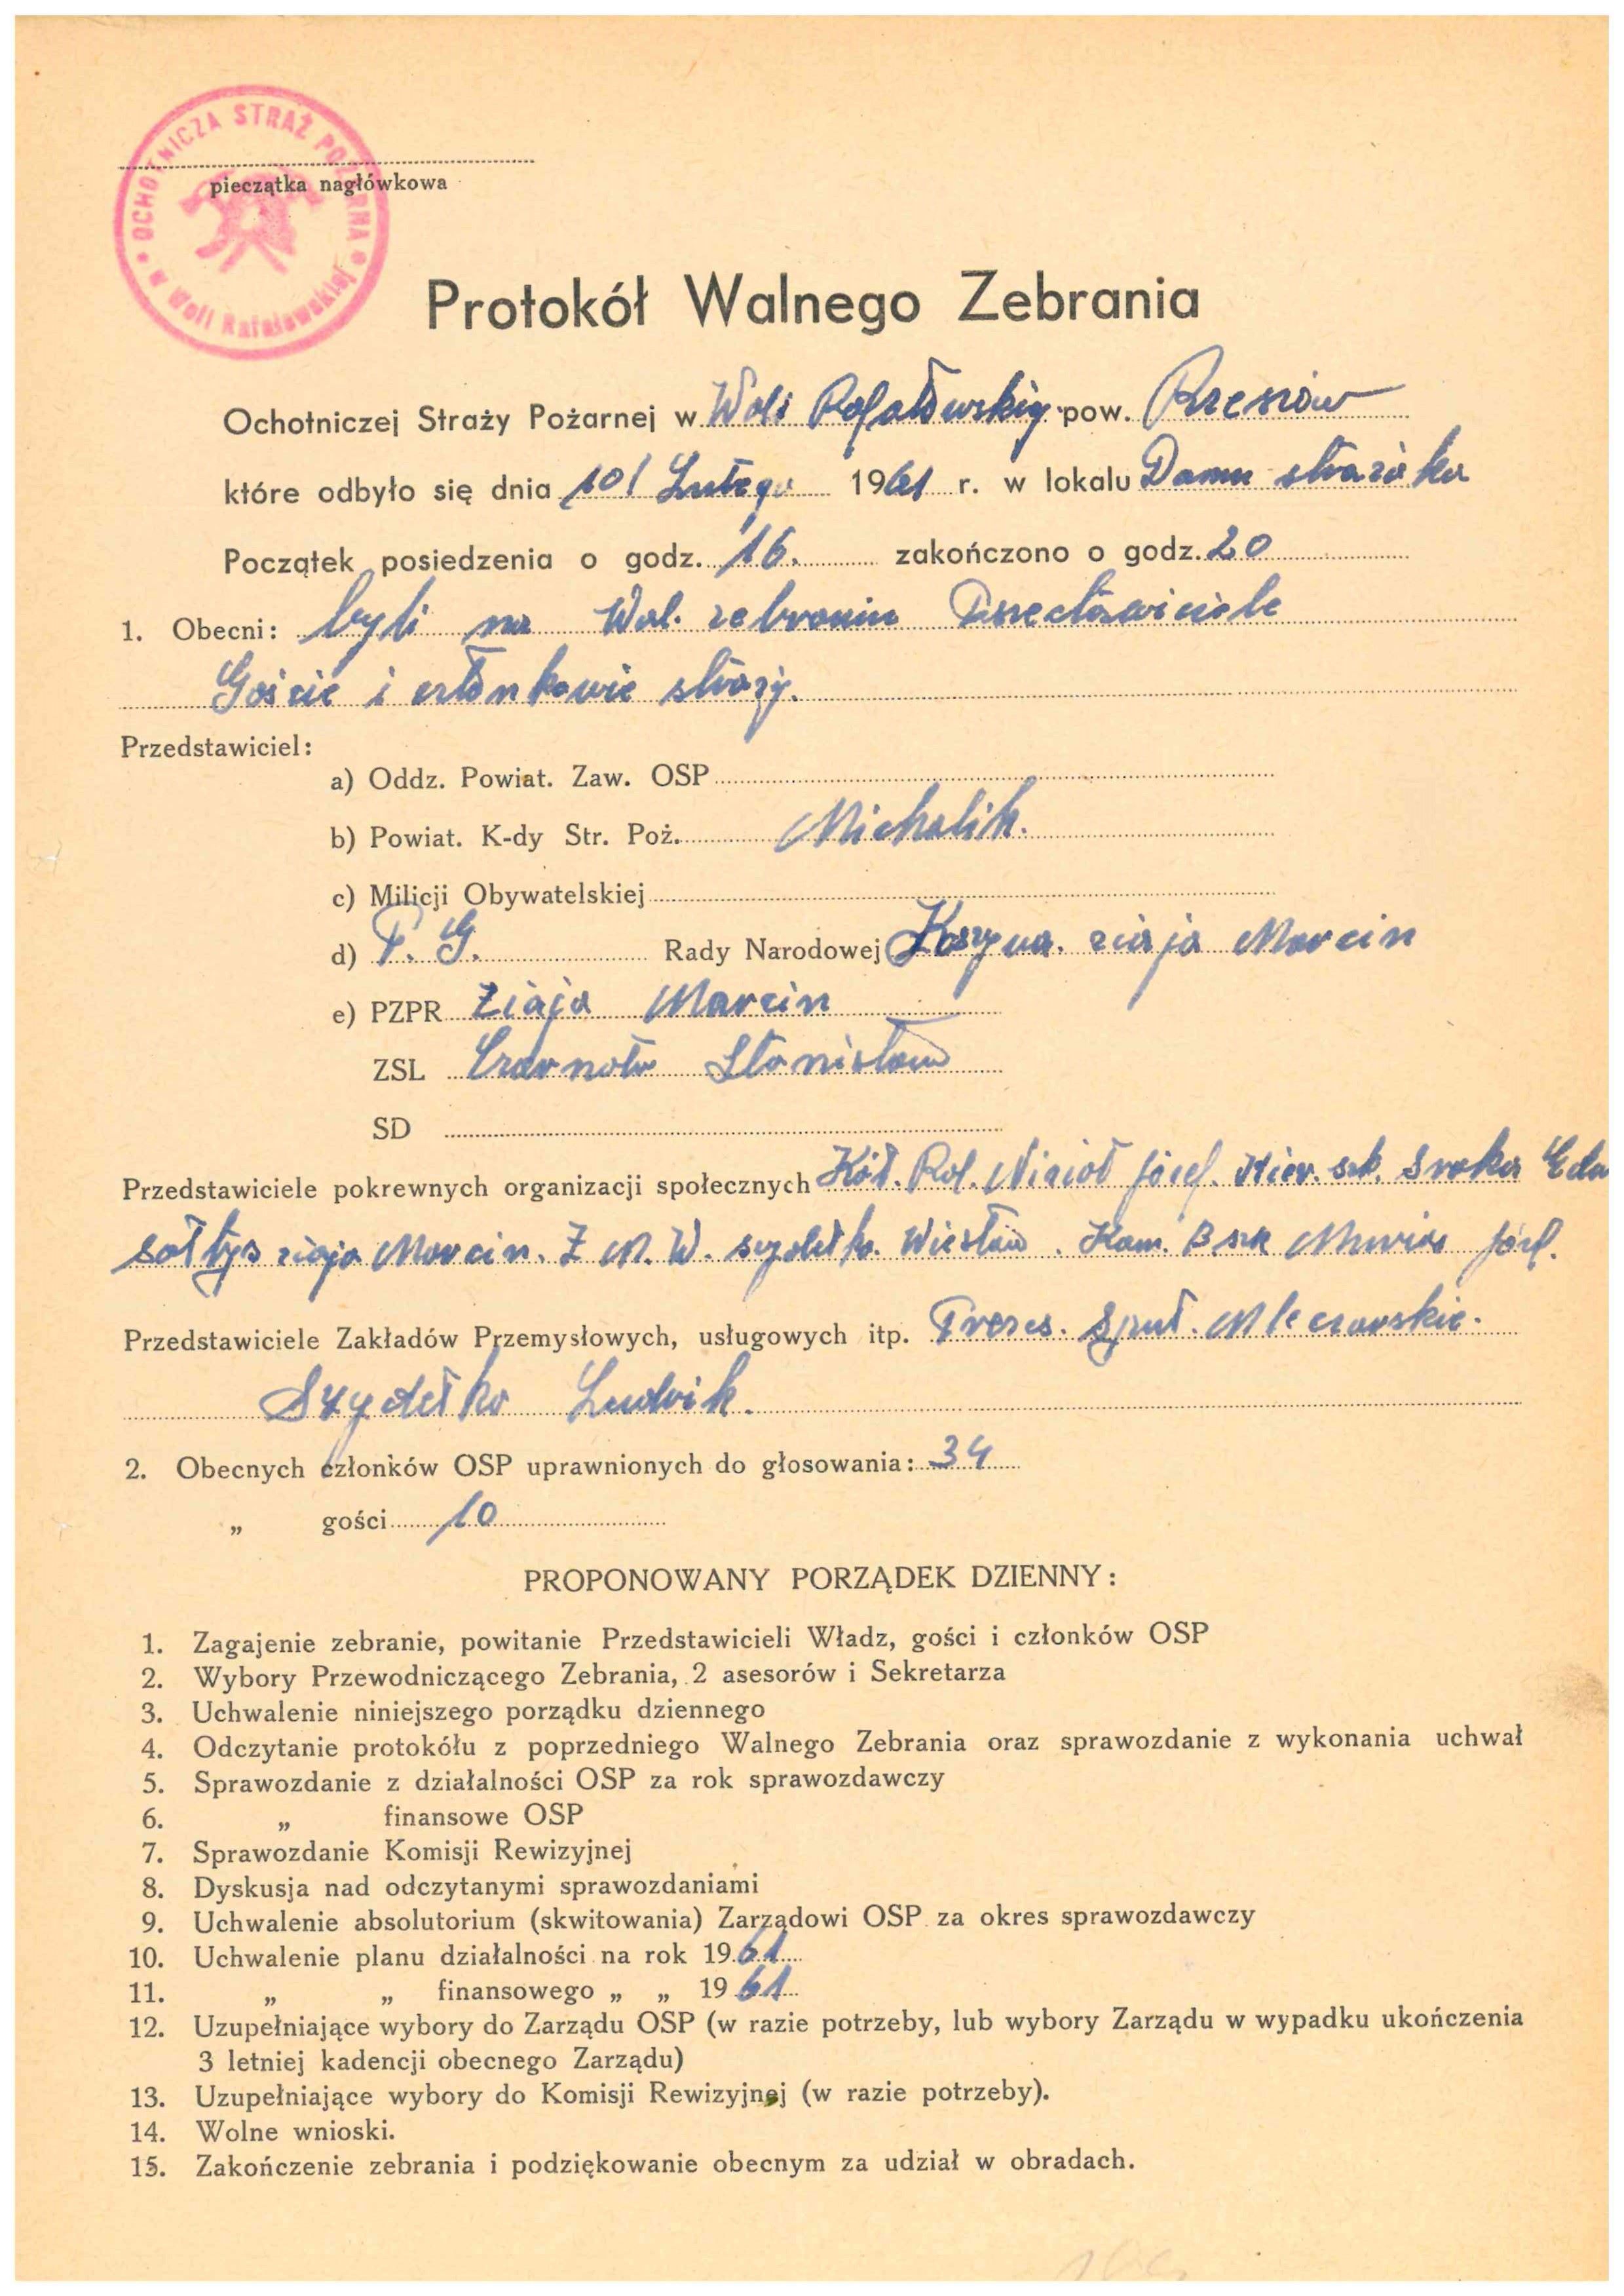 OCHOTNICZA STRAŻ POŻARNA
w Woli Rafałowskiej
pieczątka nagłówkowa
Protokół Walnego Zebrania
Ochotniczej Straży Pożarnej w Woli Rafałowskiej pow. Rzeszów
które odbyło się dnia 10/ Lutego 1961 r. w lokalu Domu strażaka
Początek posiedzenia o godz. 16. zakończono o godz. 20
1. Obecni: byli na Wal. zebraniu Przedstawiciele
Goście i członkowie straży.
Przedstawiciel:
a) Oddz. Powiat. Zaw. OSP
b) Powiat. K-dy Str. Poż. Michalik.
c) Milicji Obywatelskiej
d) P. G. Rady Narodowej ziaja Marcin
e) PZPR Ziaja Marcin
ZSL Czarnota Stanisław
SD
Przedstawiciele pokrewnych organizacji społecznych Kół. Rol. Józef. Kier. szk. Sroka Edw
sołtys ziaja Marcin. Z M. W. szydełko. Wiesław. Kom. Józef.
Przedstawiciele Zakładów Przemysłowych, usługowych itp. Prezes. Spuł. Mleczarskie.
Szydełko Ludwik.
2. Obecnych członków OSP uprawnionych do głosowania: 34
„ gości 10
PROPONOWANY PORZĄDEK DZIENNY:
1. Zagajenie zebranie, powitanie Przedstawicieli Władz, gości i członków OSP
2. Wybory Przewodniczącego Zebrania, 2 asesorów i Sekretarza
3. Uchwalenie niniejszego porządku dziennego
4. Odczytanie protokółu z poprzedniego Walnego Zebrania oraz sprawozdanie z wykonania uchwał
5. Sprawozdanie z działalności OSP za rok sprawozdawczy
6. „ finansowe OSP
7. Sprawozdanie Komisji Rewizyjnej
8. Dyskusja nad odczytanymi sprawozdaniami
9. Uchwalenie absolutorium (skwitowania) Zarządowi OSP za okres sprawozdawczy
10. Uchwalenie planu działalności na rok 1961
11. „ „ finansowego „ „ 1961
12. Uzupełniające wybory do Zarządu OSP (w razie potrzeby, lub wybory Zarządu w wypadku ukończenia
3 letniej kadencji obecnego Zarządu)
13. Uzupełniające wybory do Komisji Rewizyjnej (w razie potrzeby).
14. Wolne wnioski.
15. Zakończenie zebrania i podziękowanie obecnym za udział w obradach.